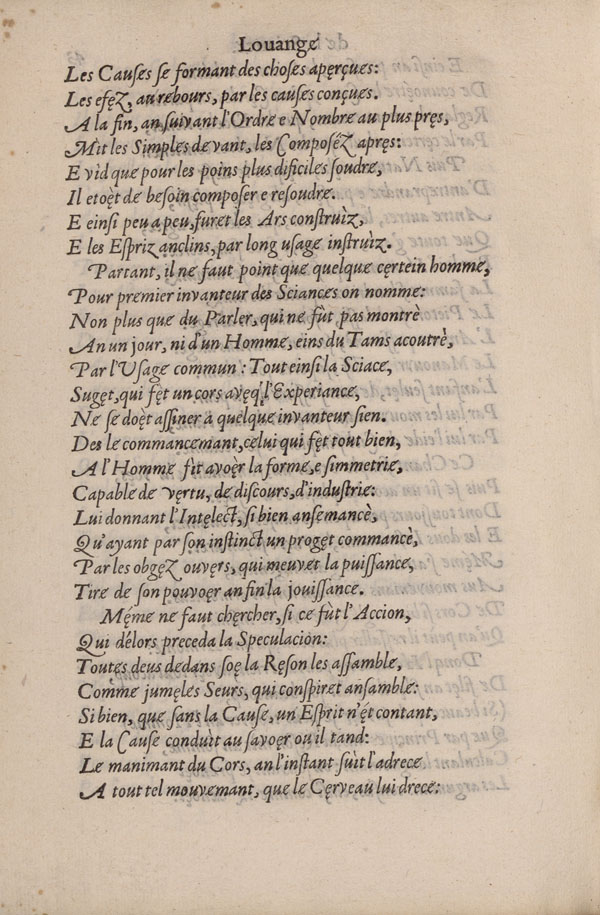 Louange
Les Causes se formant des choses aperçues:
Les efęz, au rebours, par les causes conçues.
A la fin, an suivant l'Ordre e Nombre au plus pręs,
Mìt les Simples devant, les Composéz apręs:
E vìd que pour les poins plus dificiles soudre,
Il etoèt de besoin composer e resoudre.
E einsi peu a peu, furet les Ars construìz,
E les Espriz anclins, par long usage instruìz.
Partant, il ne faut point que quelque cęrtein homme,
Pour premier invanteur des Sciances on nomme:
Non plus que du Parler, qui ne fùt pas montrè
An un jour, ni d'un Homme, eins du Tams acoutrè,
Par l'Usage commun: Tout einsi la Sciace,
Suget, qui fęt un cors aveq l'Experiance,
Ne se doèt assiner à quelque invanteur sien.
Des le commancemant, celui qui fęt tout bien,
A l'Homme fìt avoęr la forme, e simmetrie,
Capable de vęrtu, de discours, d'industrie:
Lui donnant l'Intelęct, si bien ansemancè,
Qu'ayant par son instinct un proget commancè,
Par les obgęz ouvers, qui meuvet la puissance,
Tire de son pouvoęr an fin la jouissance.
Męme ne faut chęrcher, si ce fùt l'Accion,
Qui délors preceda la Speculacion:
Toutes deus dedans soę la Ręson les assamble,
Comme jumęles Seurs, qui conspiret ansamble:
Si bien, que sans la Cause, un Esprit n'ęt contant,
E la Cause conduìt au savoęr ou il tand:
Le manimant du Cors, an l'instant suìt l'adrece
A tout tel mouvemant, que le Cęrveau lui drece: